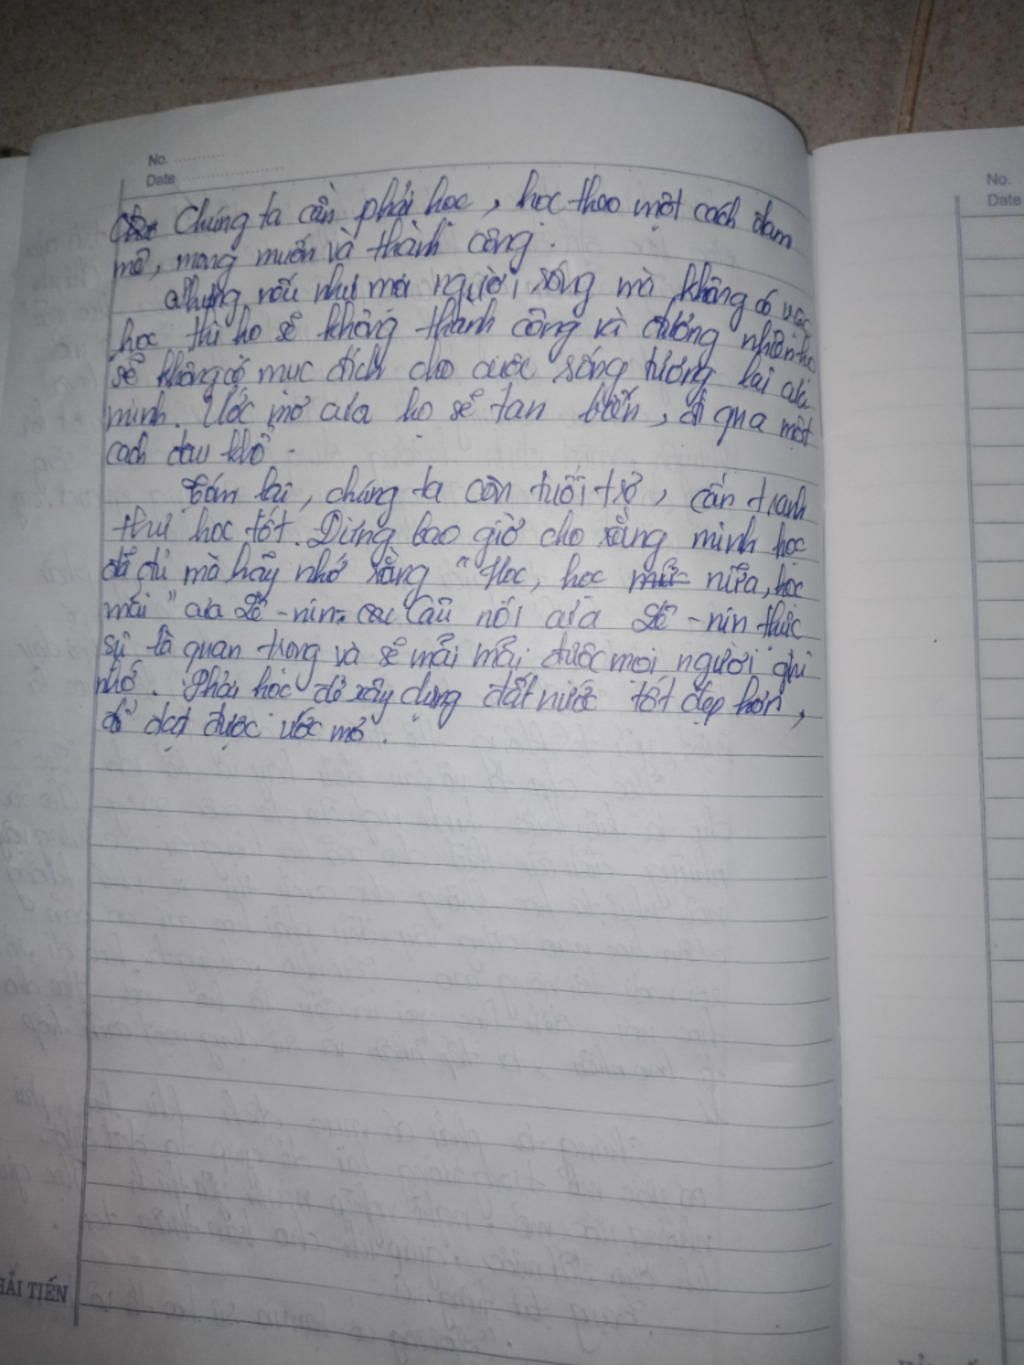 No.
Date
Chúng ta cần phải học, học theo một cách đam
mê, mong muốn và thành công.
Nhưng nếu như mọi người sống mà không có việc
học thì họ sẽ không thành công và đương nhiên họ
sẽ không có mục đích cho cuộc sống tương lai của
mình. Ước mơ của họ sẽ tan biến, đi qua một
cách đau khổ.
Tóm lại, chúng ta còn tuổi trẻ, cần tranh
thư học tốt. Đừng bao giờ cho rằng mình học
đã đủ mà hãy nhớ rằng "Học, học nữa, học
mãi" của Lê-nin. Câu nói của Lê-nin thực
sự là quan trọng và sẽ mãi mãi được mọi người ghi
nhớ. Phải học để xây dựng đất nước tốt đẹp hơn,
để đạt được ước mơ.
HẢI TIẾN
No.
Date